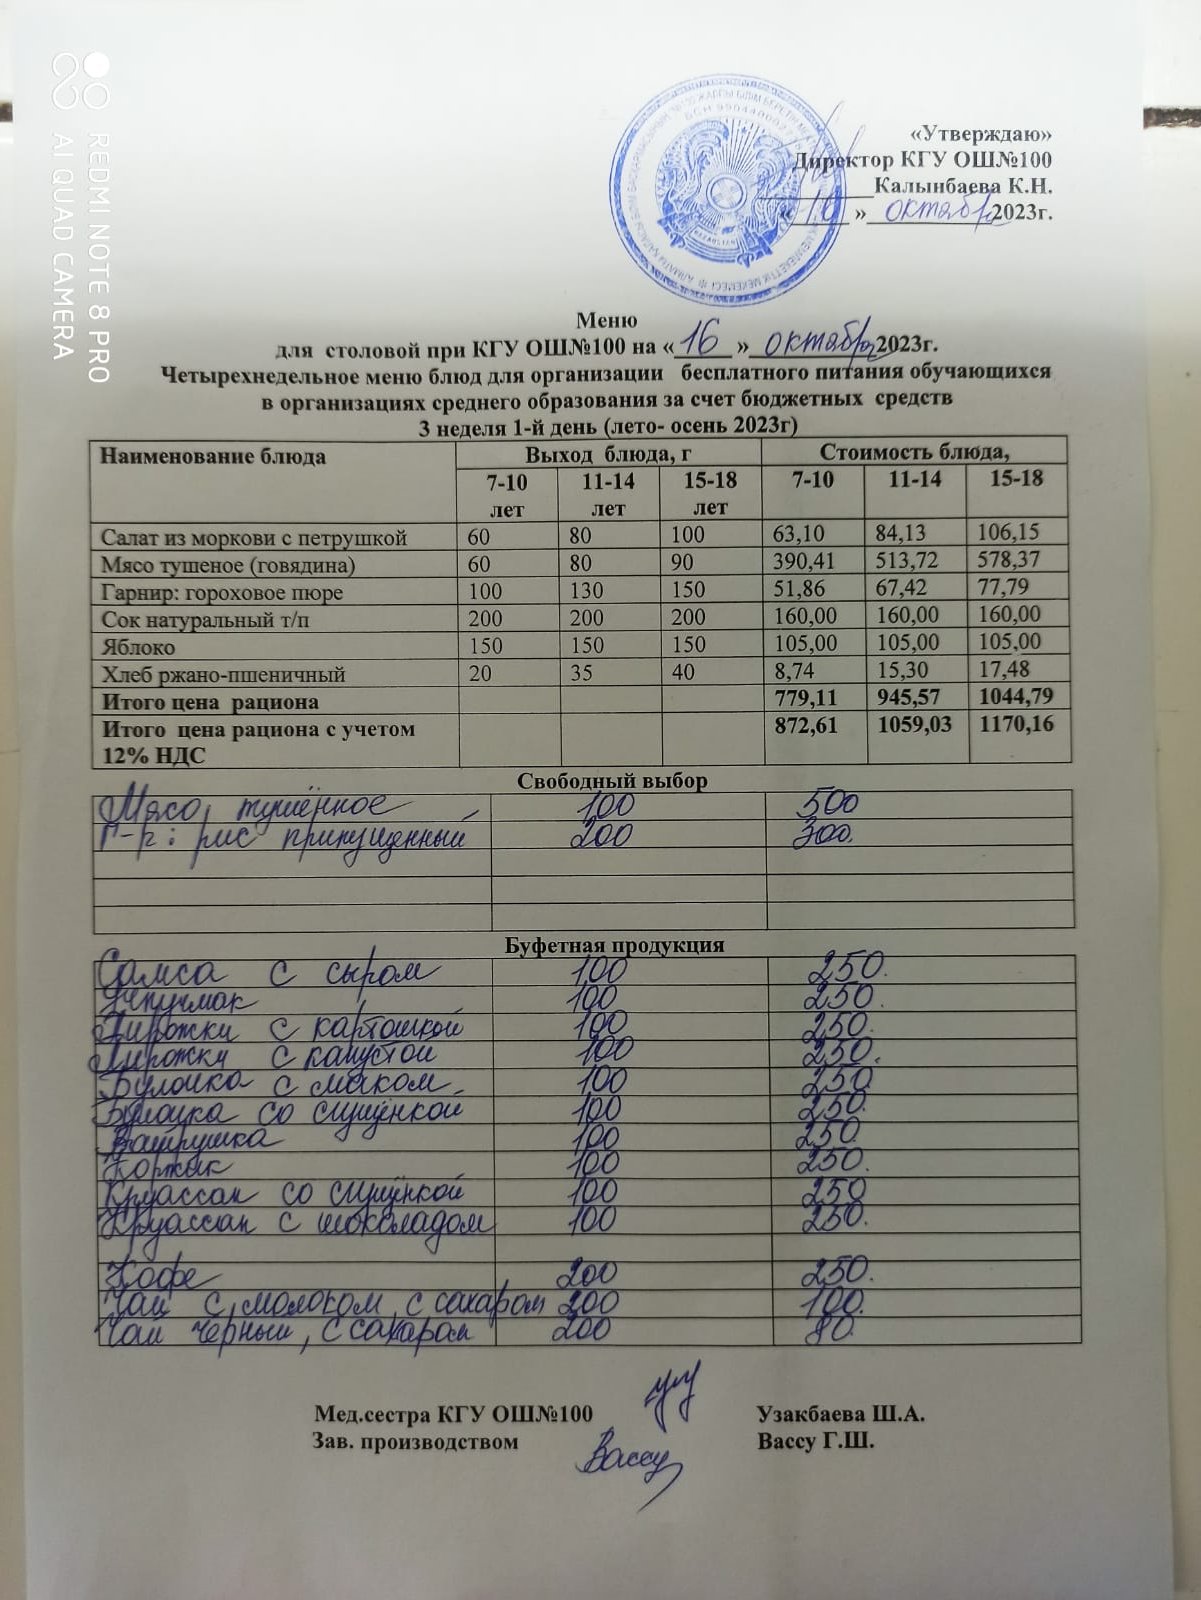 REDMI NOTE 8 PRO
AI QUAD CAMERA
«Утверждаю»
Директор КГУ ОШ№100
Калынбаева К.Н.
« 16 » октября 2023г.
Меню
для столовой при КГУ ОШ№100 на « 16 » октября 2023г.
Четырехнедельное меню блюд для организации бесплатного питания обучающихся
в организациях среднего образования за счет бюджетных средств
3 неделя 1-й день (лето- осень 2023г)
Наименование блюда Выход блюда, г Стоимость блюда,
7-10 лет 11-14 лет 15-18 лет 7-10 11-14 15-18
Салат из моркови с петрушкой 60 80 100 63,10 84,13 106,15
Мясо тушеное (говядина) 60 80 90 390,41 513,72 578,37
Гарнир: гороховое пюре 100 130 150 51,86 67,42 77,79
Сок натуральный т/п 200 200 200 160,00 160,00 160,00
Яблоко 150 150 150 105,00 105,00 105,00
Хлеб ржано-пшеничный 20 35 40 8,74 15,30 17,48
Итого цена рациона 779,11 945,57 1044,79
Итого цена рациона с учетом 872,61 1059,03 1170,16
12% НДС
Свободный выбор
Мясо тушёное 100 500
Г-р: рис припущенный 200 300.
Буфетная продукция
Самса с сыром 100 250.
Учпучмак 100 250.
Пирожки с картошкой 100 250.
Пирожки с капустой 100 250.
Булочка с маком 100 250
Булочка со сгущёнкой 100 250.
Ватрушка 100 250.
Коржик 100 250.
Круассан со сгущёнкой 100 250
Круассан с шоколадом 100 250.
Кофе 200 250.
Чай с молоком, с сахаром 200 100.
Чай черный, с сахаром 200 80.
Мед.сестра КГУ ОШ№100 Узакбаева Ш.А.
Зав. производством Вассу Вассу Г.Ш.